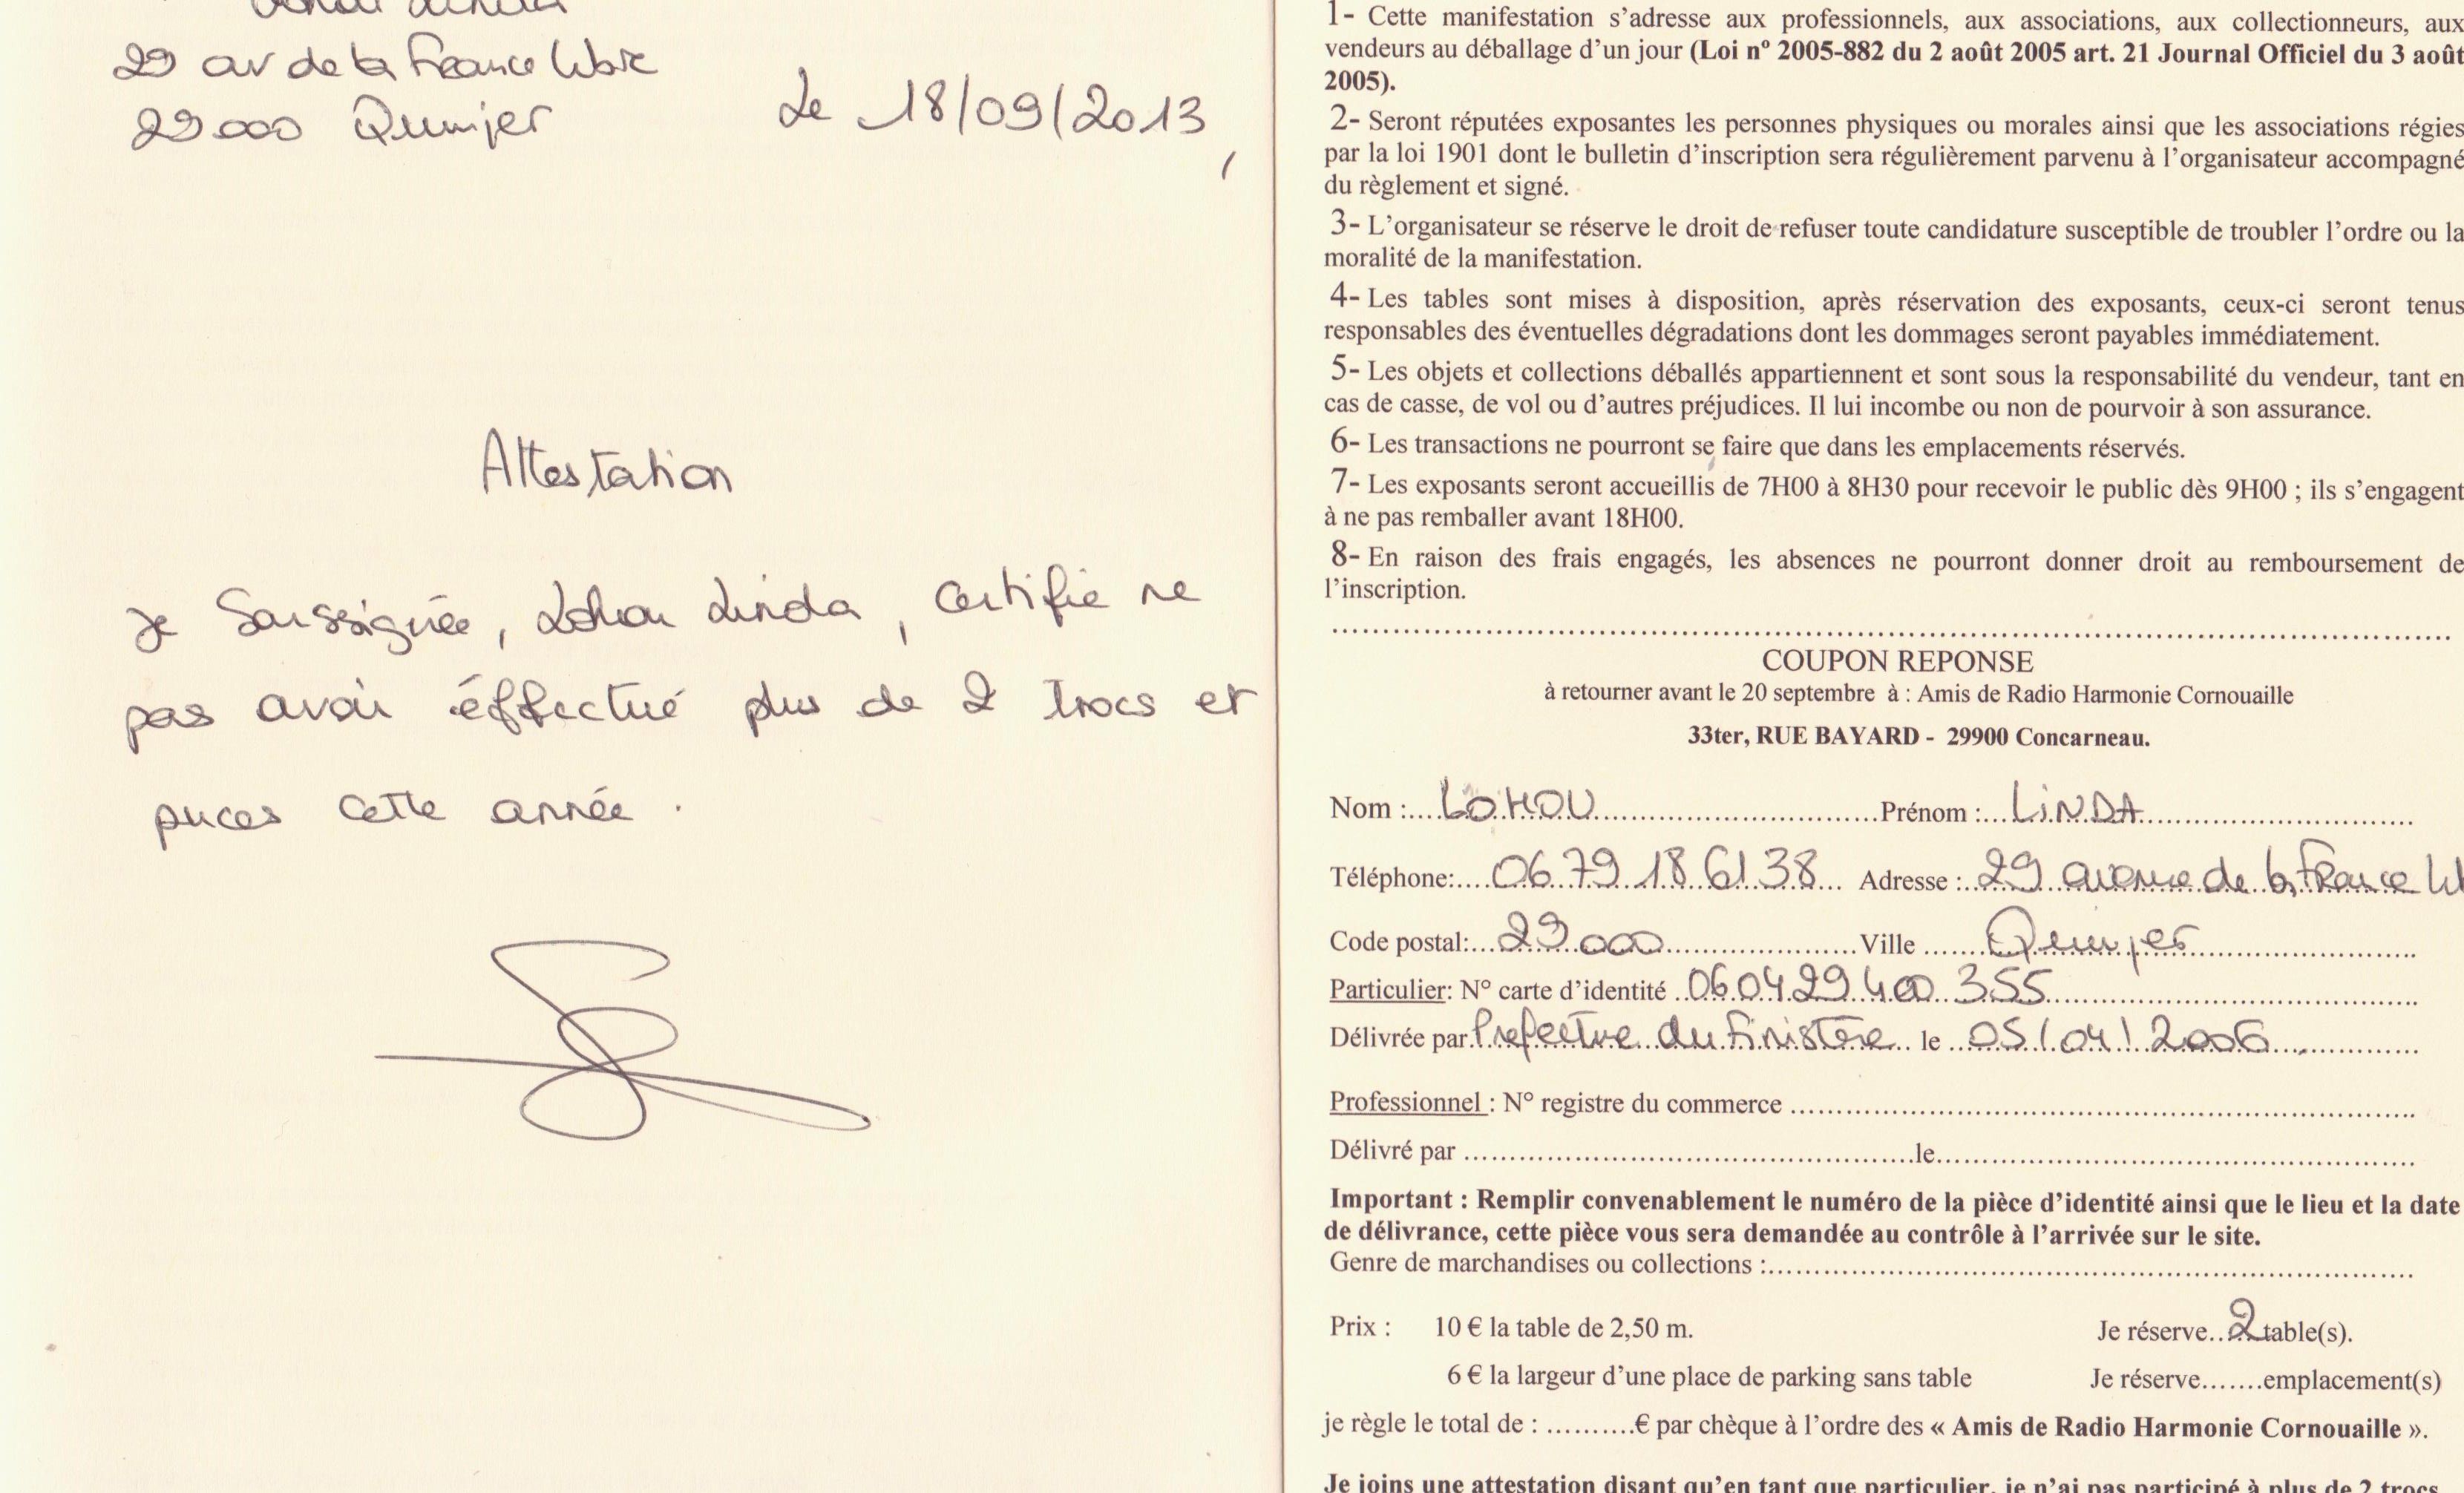 Lohou Linda
29 av de la France libre
29000 Quimper
Le 18/09/2013,
Attestation
Je Soussignée, Lohou Linda, Certifie ne
pas avoir éffectué plus de 2 trocs et
puces cette année.
1- Cette manifestation s’adresse aux professionnels, aux associations, aux collectionneurs, aux
vendeurs au déballage d’un jour (Loi nº 2005-882 du 2 août 2005 art. 21 Journal Officiel du 3 août
2005).
2- Seront réputées exposantes les personnes physiques ou morales ainsi que les associations régies
par la loi 1901 dont le bulletin d’inscription sera régulièrement parvenu à l’organisateur accompagné
du règlement et signé.
3- L’organisateur se réserve le droit de refuser toute candidature susceptible de troubler l’ordre ou la
moralité de la manifestation.
4- Les tables sont mises à disposition, après réservation des exposants, ceux-ci seront tenus
responsables des éventuelles dégradations dont les dommages seront payables immédiatement.
5- Les objets et collections déballés appartiennent et sont sous la responsabilité du vendeur, tant en
cas de casse, de vol ou d’autres préjudices. Il lui incombe ou non de pourvoir à son assurance.
6- Les transactions ne pourront se faire que dans les emplacements réservés.
7- Les exposants seront accueillis de 7H00 à 8H30 pour recevoir le public dès 9H00 ; ils s’engagent
à ne pas remballer avant 18H00.
8- En raison des frais engagés, les absences ne pourront donner droit au remboursement de
l’inscription.
COUPON REPONSE
à retourner avant le 20 septembre à : Amis de Radio Harmonie Cornouaille
33ter, RUE BAYARD - 29900 Concarneau.
Nom :....LOHOU....Prénom :...LiNDA....
Téléphone:....06.79.18.61.38... Adresse :..29 avenue de la France li
Code postal:...29000....Ville ......Quimper....
Particulier: N° carte d’identité ..060429400355....
Délivrée par.Prefecture du Finistère.. le ..05/04/2006....
Professionnel : N° registre du commerce ....
Délivré par ....le....
Important : Remplir convenablement le numéro de la pièce d’identité ainsi que le lieu et la date
de délivrance, cette pièce vous sera demandée au contrôle à l’arrivée sur le site.
Genre de marchandises ou collections :....
Prix : 10 € la table de 2,50 m. Je réserve..2table(s).
6 € la largeur d’une place de parking sans table Je réserve.......emplacement(s)
je règle le total de : ..........€ par chèque à l’ordre des « Amis de Radio Harmonie Cornouaille ».
Je joins une attestation disant qu’en tant que particulier, je n’ai pas participé à plus de 2 trocs